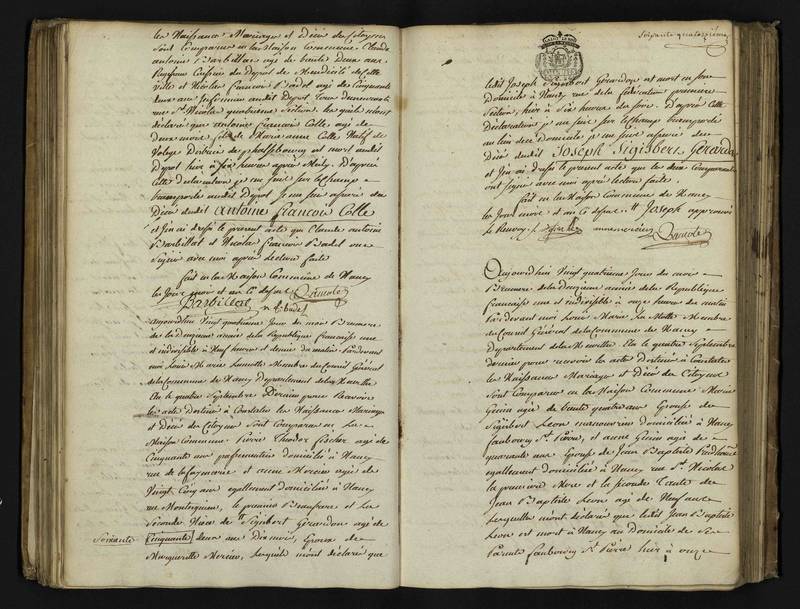 les Naissance Mariage et Décès des Citoyens
sont Comparus en la Maison Commune Claude
antoine Barbillat agé de trente deux ans
du Depot de Mendicité de cette
ville et Nicolas François Badel agé de Cinquante
deux ans Infirmier audit Depot tous demeurants
rue St Nicolas Section. lesquels m'ont
déclaré que antoine françois Colle, agé de
Deux mois fils de Marie anne Colle Natif de
est mort audit
Depot hier à six heures après Midy. D'après
Cette Déclaration je me suis sur le Champ
transporté audit Depot, Je me suis assuré du
Décès dudit antoine françois Colle
et J'en ai dressé le présent acte que Claude antoine
Barbillat et Nicolas françois Badel ont
Signé avec moi après Lecture faite
fait en la Maison Commune de Nancy
les Jour, mois et an Ci dessus
Barbillat
aujourd'hui Vingt quatrieme Jour du mois Brumaire
de la Douzieme année de la Republique française une
et indivisible à Neuf heures et demie du matin Pardevant
moi Louis Marie Lamotte Membre du Conseil Général
de la Commune de Nancy Departement de la Meurthe
Elu le quatre Septembre Dernier pour recevoir
les actes destinés à Constater les Naissance Mariage
et Décès des Citoyens Sont Comparus en La
Maison Commune. Pierre Theodor fischer agé de
Cinquante ans domicilié à Nancy
rue de la et anne Mercier agée de
Vingt Cinq ans egallement domiciliée à Nancy
rue Montesquieu, le premier Beaufrere et La
Seconde Niece de Sigisbert Gérardon agé de
Soixante Cinquante deux ans Dix mois, Epoux de
Marguerite Mercier, Lesquels m'ont déclaré que
Soixante quatorzième
ledit Joseph Sigisbert Gérardon est mort en son
Domicile à Nancy rue de la premiere
Section, hier à Six heures du soir. D'après Cette
Déclaration je me suis sur le champ transporté
au lieu dece Domicile je me suis assuré du
Décès dudit Joseph Sigisbert Gérardon
et J'en ai dressé le présent acte que les deux Comparants
ont signé avec moi après lecture faite.
fait en la Maison Commune de Nancy
les Jour, mois et an Ci dessus. # Joseph approuvé
le Renvoy. anne mercier Lamotte
Aujourd'hui Vingt quatrieme Jour du mois
Brumaire de la Douzieme année de la Republique
française une et indivisible à onze heures du matin
Pardevant moi Louis Marie La Motte Membre
du Conseil Général de la Commune de Nancy
Departement de la Meurthe. Elu le quatre Septembre
dernier pour recevoir les actes Destinés à Constater
les Naissance Mariage et Décès des Citoyens
Sont Comparus en la Maison Commune Marie
Genin agée de trente quatre ans Epouse de
Sigisbert Leon manouvrier domicilié à Nancy
faubourg St Pierre, et anne Genin agée de
quarante ans Epouse de Jean Baptiste
egallement domiciliée à Nancy rue St Nicolas
la premiere Mere et la seconde tante de
Jean Baptiste Leon agé de Neuf ans
Lesquelles m'ont déclaré que ledit Jean Baptiste
Leon est mort à Nancy au Domicile de Ses
Parents faubourg St Pierre hier à onze